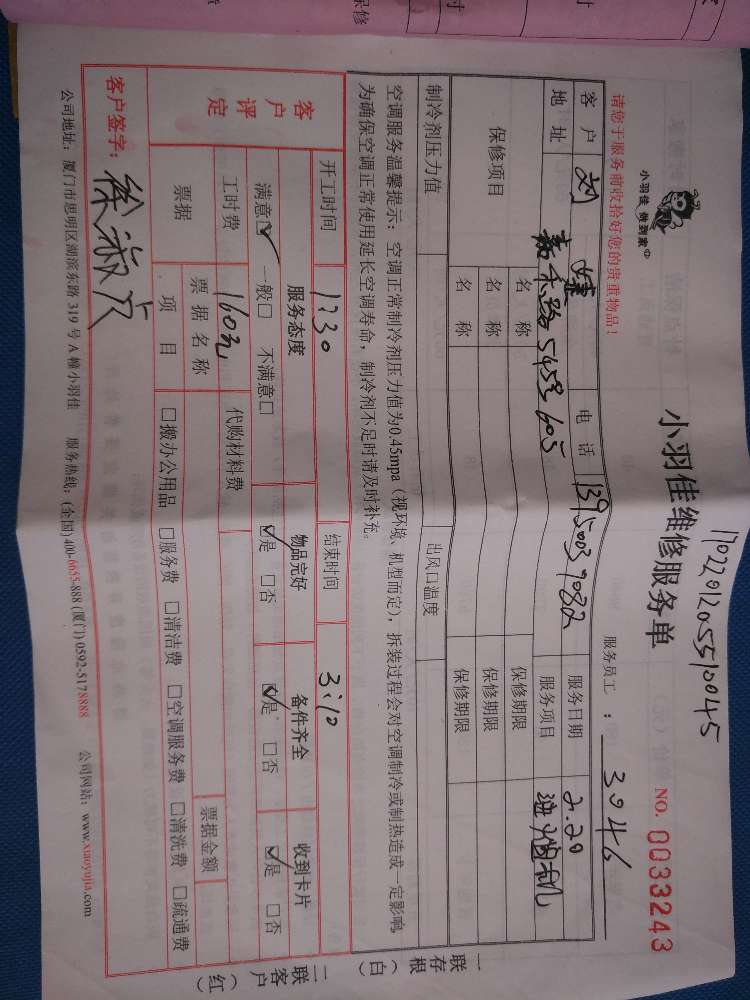 保修
小羽佳 做到家
小羽佳维修服务单
170220120551000​45
NO. 0033243
请您于服务前收拾好您的贵重物品!
服务员工 : 3046
客户 刘 电话 13950037082 服务日期 2.20
地址 嘉禾路 545号 605 服务项目 油烟机
保修项目 名称 保修期限
名称 保修期限
名称 保修期限
制冷剂压力值 出风口温度
空调服务温馨提示:空调正常制冷剂压力值为0.45mpa(视环境、机型而定),拆装过程会对空调制冷或制热造成一定影响
为确保空调正常使用延长空调寿命,制冷剂不足时请及时补充。
开工时间 1:30 结束时间 3:10
客户评定 服务态度 物品完好 备件齐全 收到卡片
满意☑ 一般□ 不满意□ ☑是 □否 ☑是 □否 ☑是 □否
工时费 160元 代购材料费
票据 票据名称 票据金额
项目 □搬办公用品 □服务费 □清洁费 □空调服务费 □清洗费 □疏通费
客户签字:徐淑贞
公司地址:厦门市思明区湖滨东路 319 号 A 幢小羽佳 服务热线:(全国) 400-6655-888 (厦门) 0592-5178888 公司网站:www.xiaoyujia.com
一联存根(白)
二联客户(红)